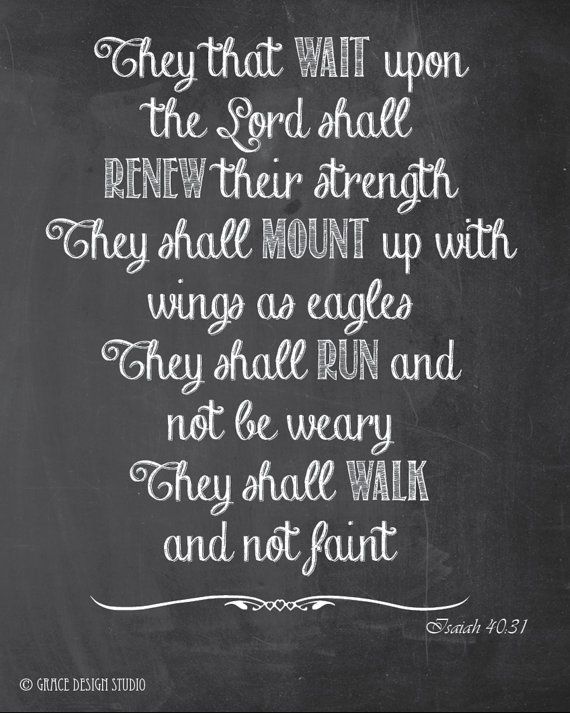 They that WAIT upon
the Lord shall
RENEW their strength
They shall MOUNT up with
wings as eagles
They shall RUN and
not be weary
They shall WALK
and not faint
Isaiah 40:31
© GRACE DESIGN STUDIO